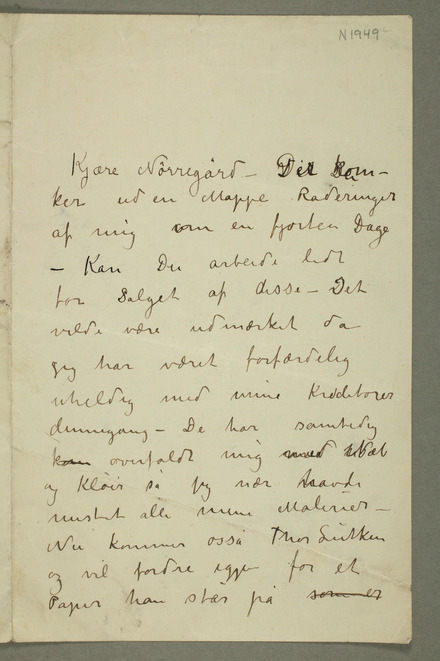 N 1949
Kjære Nörregård – Det kom-
ker ud en Mappe Raderinger
af mig om en fjorten Dage
– Kan Du arbeide lidt
for Salget af disse – Det
vilde være udmærket da
jeg har været forfærdelig
uheldig med mine Kreditorer
dennegang – De har samtidig
kom overfaldt mig med Næb
og Klöir så jeg nær havde
mistet alle mine Malerier –
Nu kommer osså Thor Lütken
og vil fordre igjen for et
Papir han står på som er